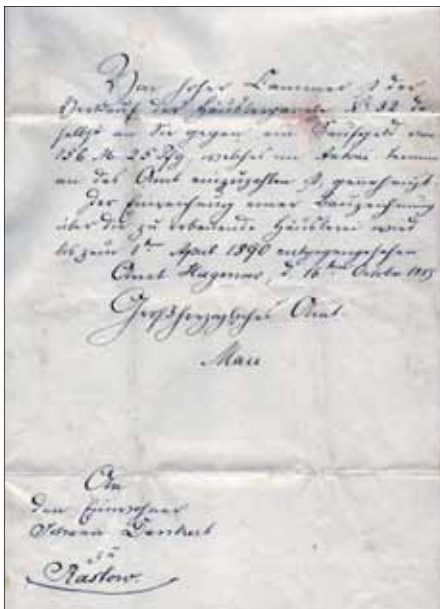 Von hoher Kammer ist der
Verkauf der Häuslerparcele No 32 da
selbst an Sie gegen ein Kaufgeld von
156 M 25 Pfg welches im Antoni termin
an das Amt einzuzahlen ist, genehmigt
Der Einreichung einer Bauzeichnung
über die zu erbauende Häuslerei wird
bis zum 1ten April 1890 entgegengesehen
Amt Hagenow, d. 16ten October
Großherzogliches Amt
An
den Einwohner
Johann
zu
Rastow.